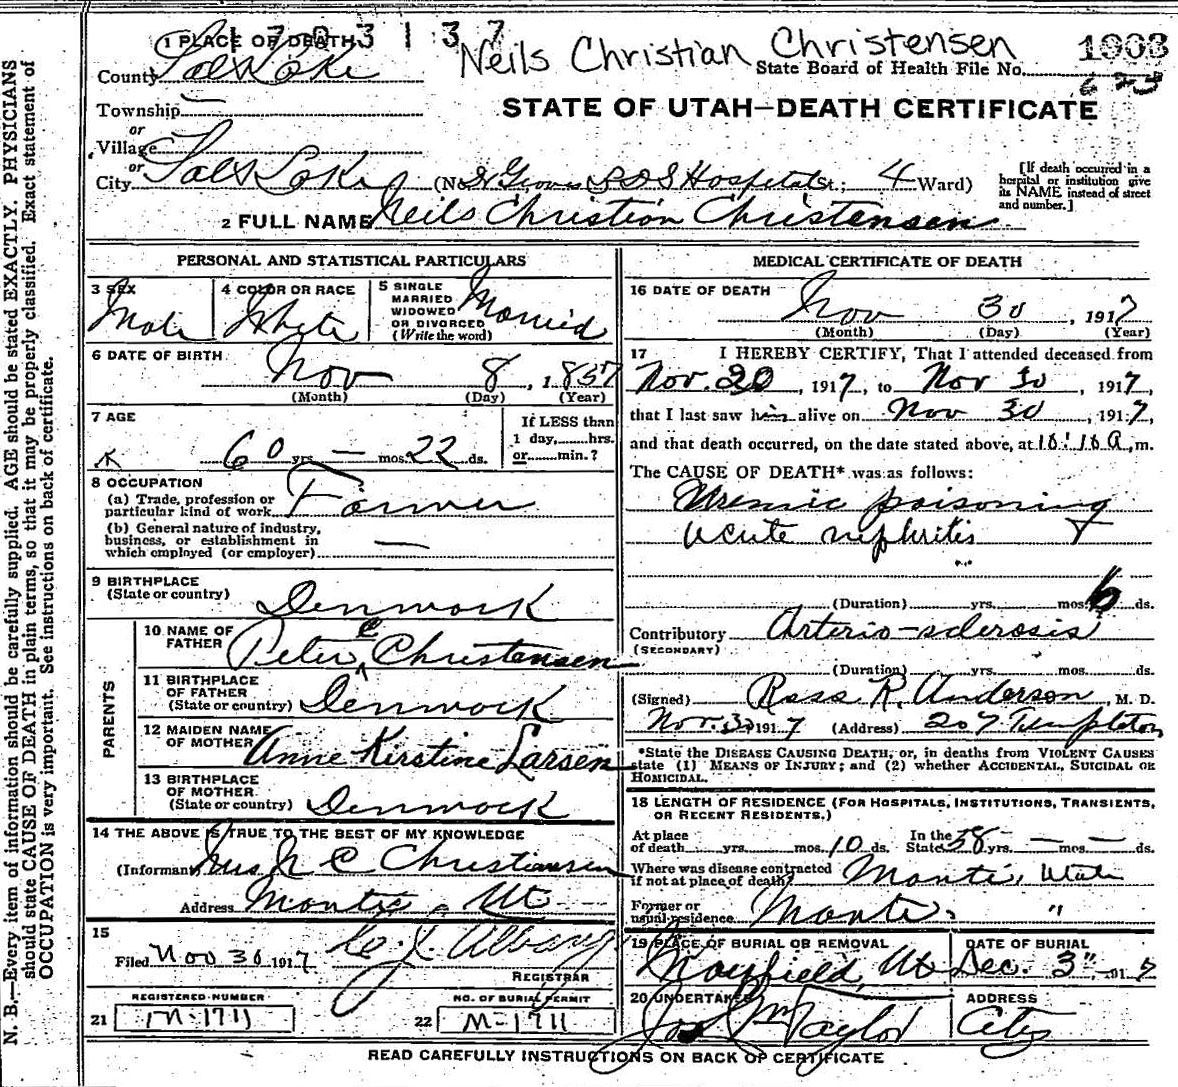 1703137
Neils Christian Christensen
1 PLACE OF DEATH
State Board of Health File No. 1003
County Salt Lake
STATE OF UTAH—DEATH CERTIFICATE
Township —
or
Village
or
City Salt Lake (No. Groves LDS Hospital St.; 4 Ward)
[If death occurred in a
hospital or institution give
its NAME instead of street
and number.]
2 FULL NAME Neils Christian Christensen
PERSONAL AND STATISTICAL PARTICULARS
3 SEX Male
4 COLOR OR RACE White
5 SINGLE
MARRIED
WIDOWED
OR DIVORCED
(Write the word) Married
6 DATE OF BIRTH
Nov 8, 1857
(Month) (Day) (Year)
7 AGE
60 yrs. — mos. 22 ds.
If LESS than
1 day,......hrs.
or......min.?
8 OCCUPATION
(a) Trade, profession or
particular kind of work Farmer
(b) General nature of industry,
business, or establishment in
which employed (or employer) —
9 BIRTHPLACE
(State or country) Denmark
PARENTS
10 NAME OF
FATHER Peter C Christensen
11 BIRTHPLACE
OF FATHER
(State or country) Denmark
12 MAIDEN NAME
OF MOTHER Anne Kirstine Larsen
13 BIRTHPLACE
OF MOTHER
(State or country) Denmark
14 THE ABOVE IS TRUE TO THE BEST OF MY KNOWLEDGE
(Informant) Mrs N C Christensen
Address Monti Ut
15
Filed Nov 30 1917
REGISTRAR
REGISTERED NUMBER
21 M-1711
NO. OF BURIAL PERMIT
22 M-1711
MEDICAL CERTIFICATE OF DEATH
16 DATE OF DEATH
Nov 30, 1917
(Month) (Day) (Year)
17 I HEREBY CERTIFY, That I attended deceased from
Nov. 20, 1917, to Nov 30, 1917,
that I last saw him alive on Nov 30, 1917,
and that death occurred, on the date stated above, at 10:10 a.m.
The CAUSE OF DEATH* was as follows:
Uremic poisoning
acute nephritis
(Duration) yrs. mos. 6 ds.
Contributory Arterio-sclerosis
(SECONDARY)
(Duration) yrs. mos. ds.
(Signed) Ross R. Anderson, M. D.
Nov. 30 1917 (Address) 207 Templeton
*State the DISEASE CAUSING DEATH, or, in deaths from VIOLENT CAUSES
state (1) MEANS OF INJURY; and (2) whether ACCIDENTAL, SUICIDAL OR
HOMICIDAL.
18 LENGTH OF RESIDENCE (FOR HOSPITALS, INSTITUTIONS, TRANSIENTS,
OR RECENT RESIDENTS.)
At place
of death yrs. mos. 10 ds. In the
State 58 yrs. — — ds.
Where was disease contracted
if not at place of death? Monti, Utah
Former or
usual residence Monti "
19 PLACE OF BURIAL OR REMOVAL
Mayfield, Ut
DATE OF BURIAL
Dec. 3" 1917
20 UNDERTAKER
Jos Wm Taylor
ADDRESS
City
READ CAREFULLY INSTRUCTIONS ON BACK OF CERTIFICATE
N. B.—Every item of information should be carefully supplied. AGE should be stated EXACTLY. PHYSICIANS
should state CAUSE OF DEATH in plain terms, so that it may be properly classified. Exact statement of
OCCUPATION is very important. See instructions on back of certificate.